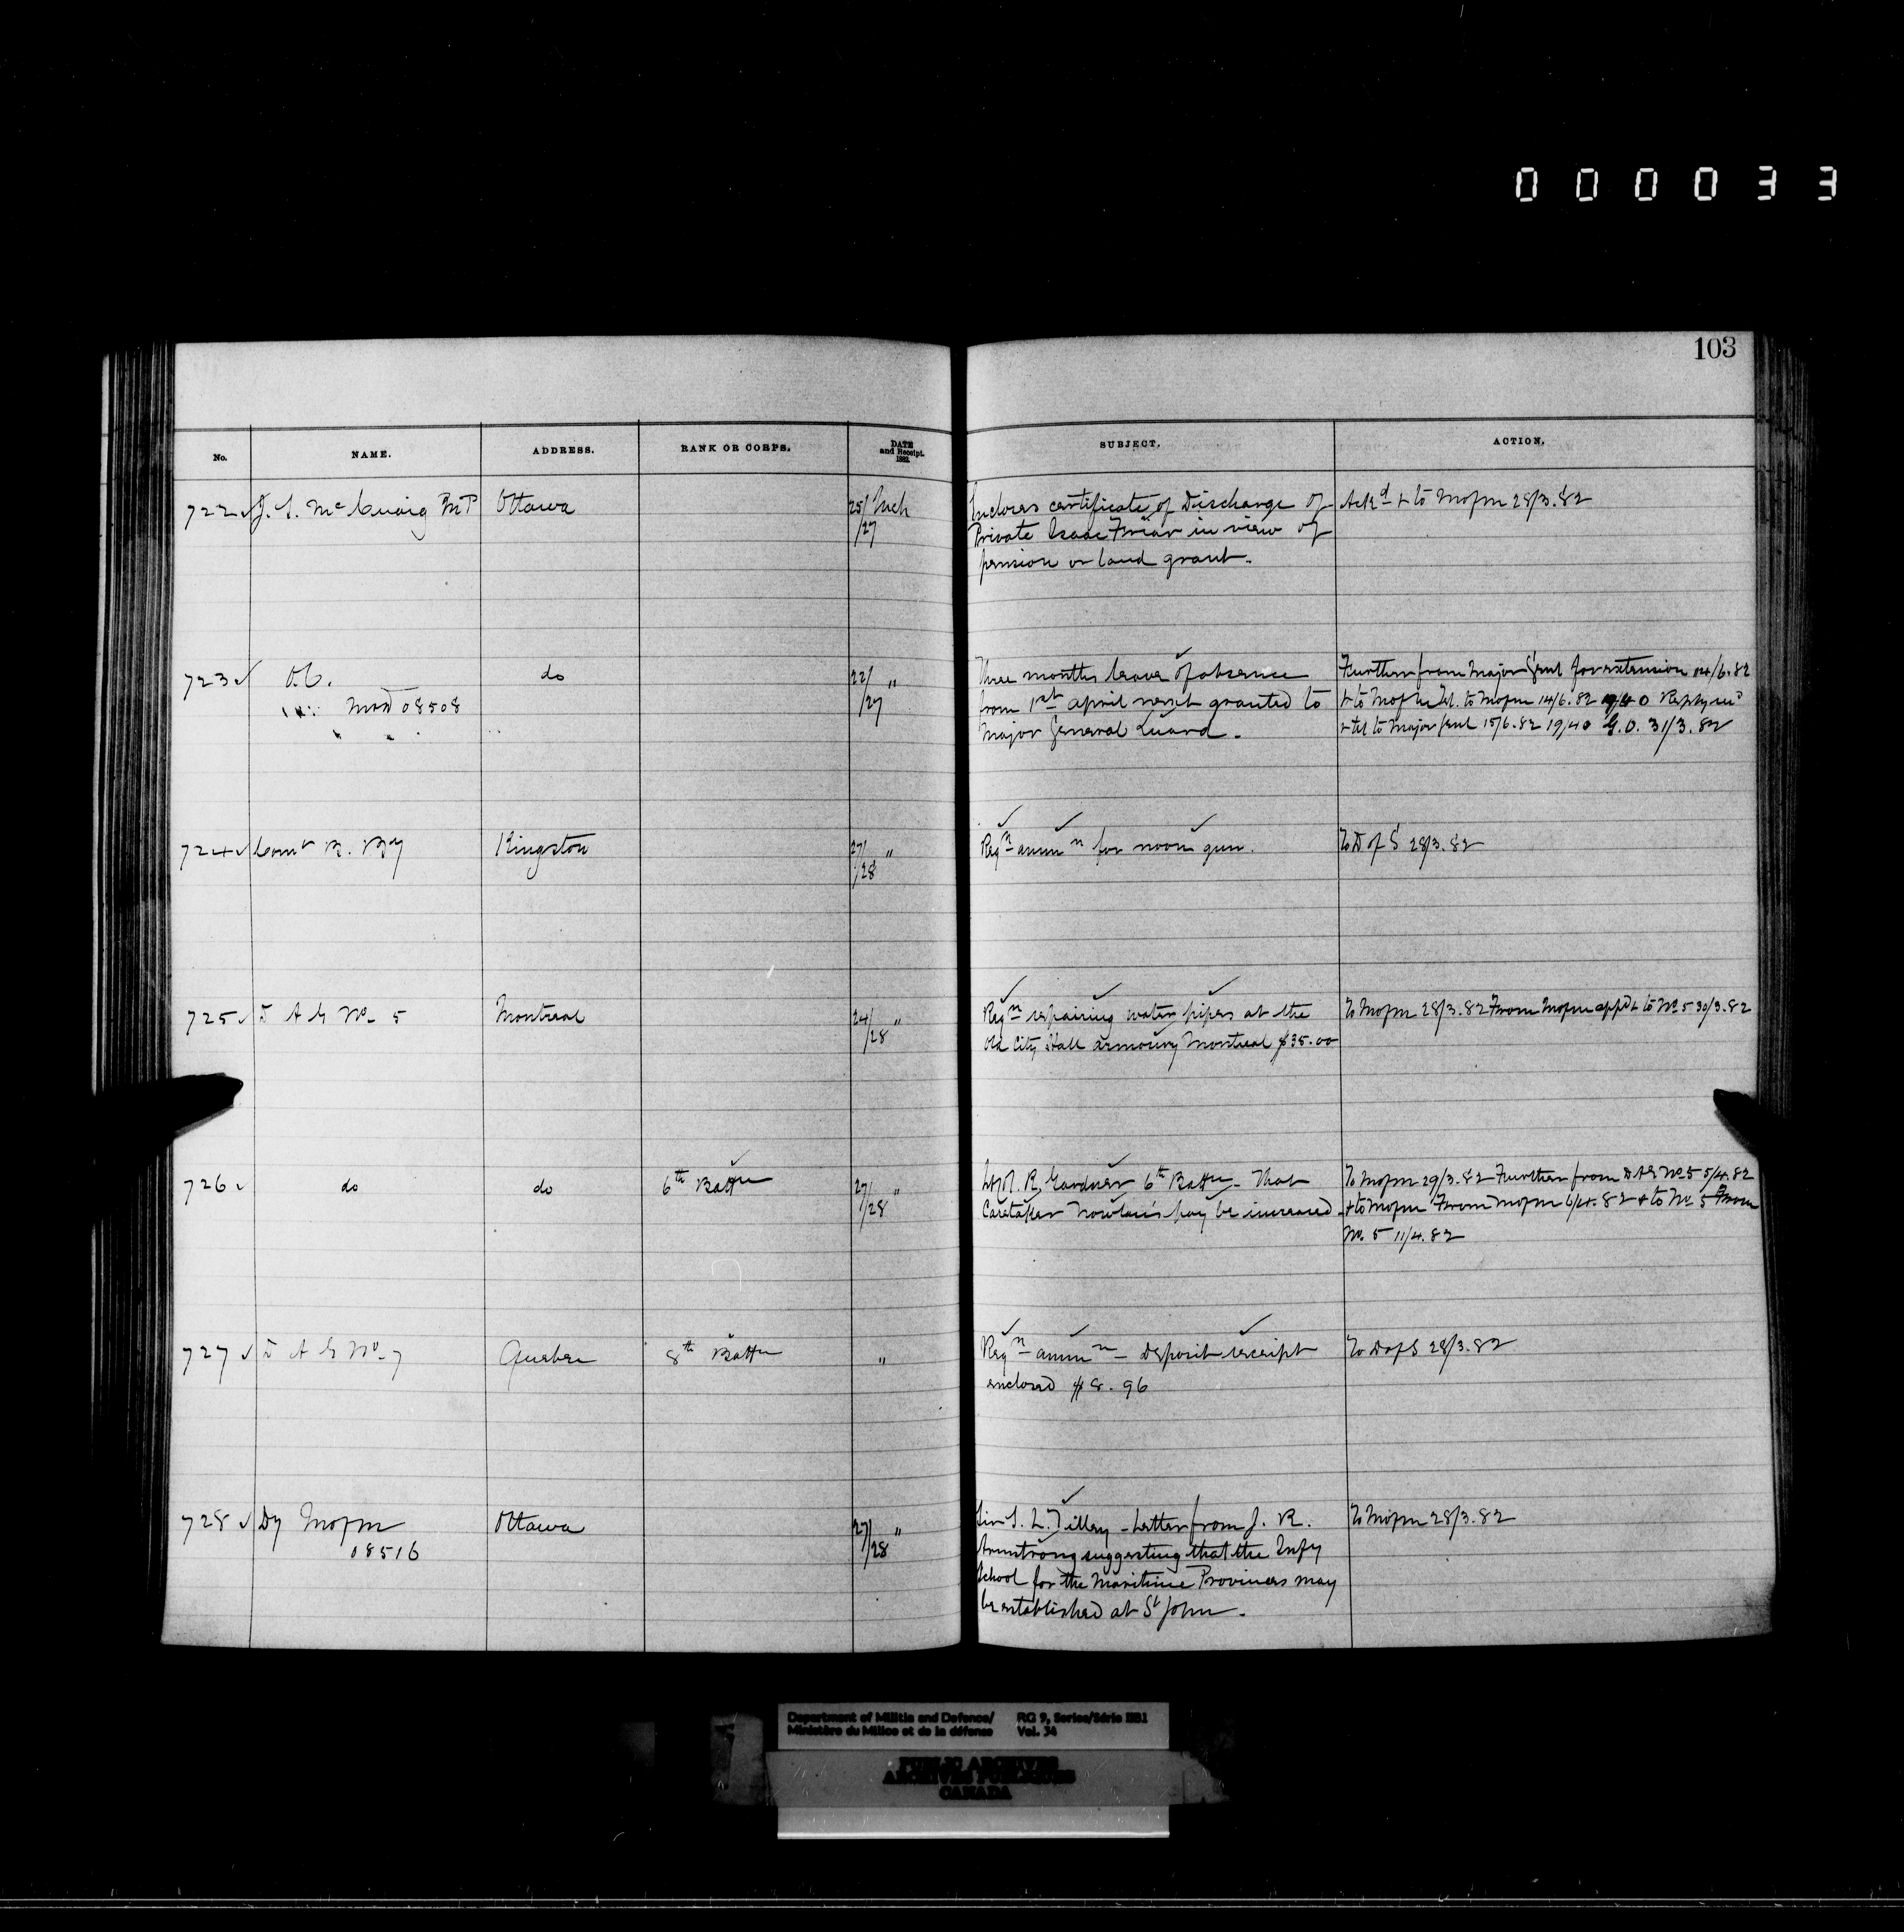 000033
103
No. NAME. ADDRESS. RANK OR CORPS. DATE and Receipt. 1882. SUBJECT. ACTION.
722 J. S. McCuaig M.P Ottawa 25/ Mch /27
Incloses certificate of Discharge of
Private Isaac Friar in view of
pension or land grant.
Ackd + to Mofm 28/3.82
723 O.C. do 22/ " /27
MoD 08508
Three months leave of absence
from 1st april next granted to
Major General Luard.
Further from Major Genl for extension 14/6.82
+ to Mofm Tel. to Mofm 14/6.82
+ tel to Major Genl 15/6.82 19/40 G.O. 31/3.82
724 Comt B. By Kingston 27/ " /28
Reqn ammn for noon gun.
To D of S 28/3.82
725 D A G No 5 Montreal 24/ " /28
Reqn repairing water pipes at the
Old City Hall armoury Montreal $35.00
To Mofm 28/3.82 From Mofm appd + to No 5 30/3.82
726 do do 6th Battn 27/ " /28
R. Gardner 6th Battn - That
Caretaker Nowlan's pay be increased.
To Mofm 29/3.82 Further from DAG No 5 5/4.82
+ to Mofm From Mofm 6/4.82 + to No 5 From
No. 5 11/4.82
727 D A G No 7 Quebec 8th Battn "
Reqn ammn - Deposit receipt
enclosed $8.96
To D of S 28/3.82
728 Dy Mofm Ottawa 27/ " /28
08516
Sir S. L. Tilley - Letter from J. R.
Armstrong suggesting that the Infy
School for the Maritime Provinces may
be established at St John.
To Mofm 28/3.82
Department of Militia and Defence/ RG 9, Series/Série IIB1
Ministère du Milice et de la défense Vol. 34
PUBLIC ARCHIVES
ARCHIVES PUBLIQUES
CANADA